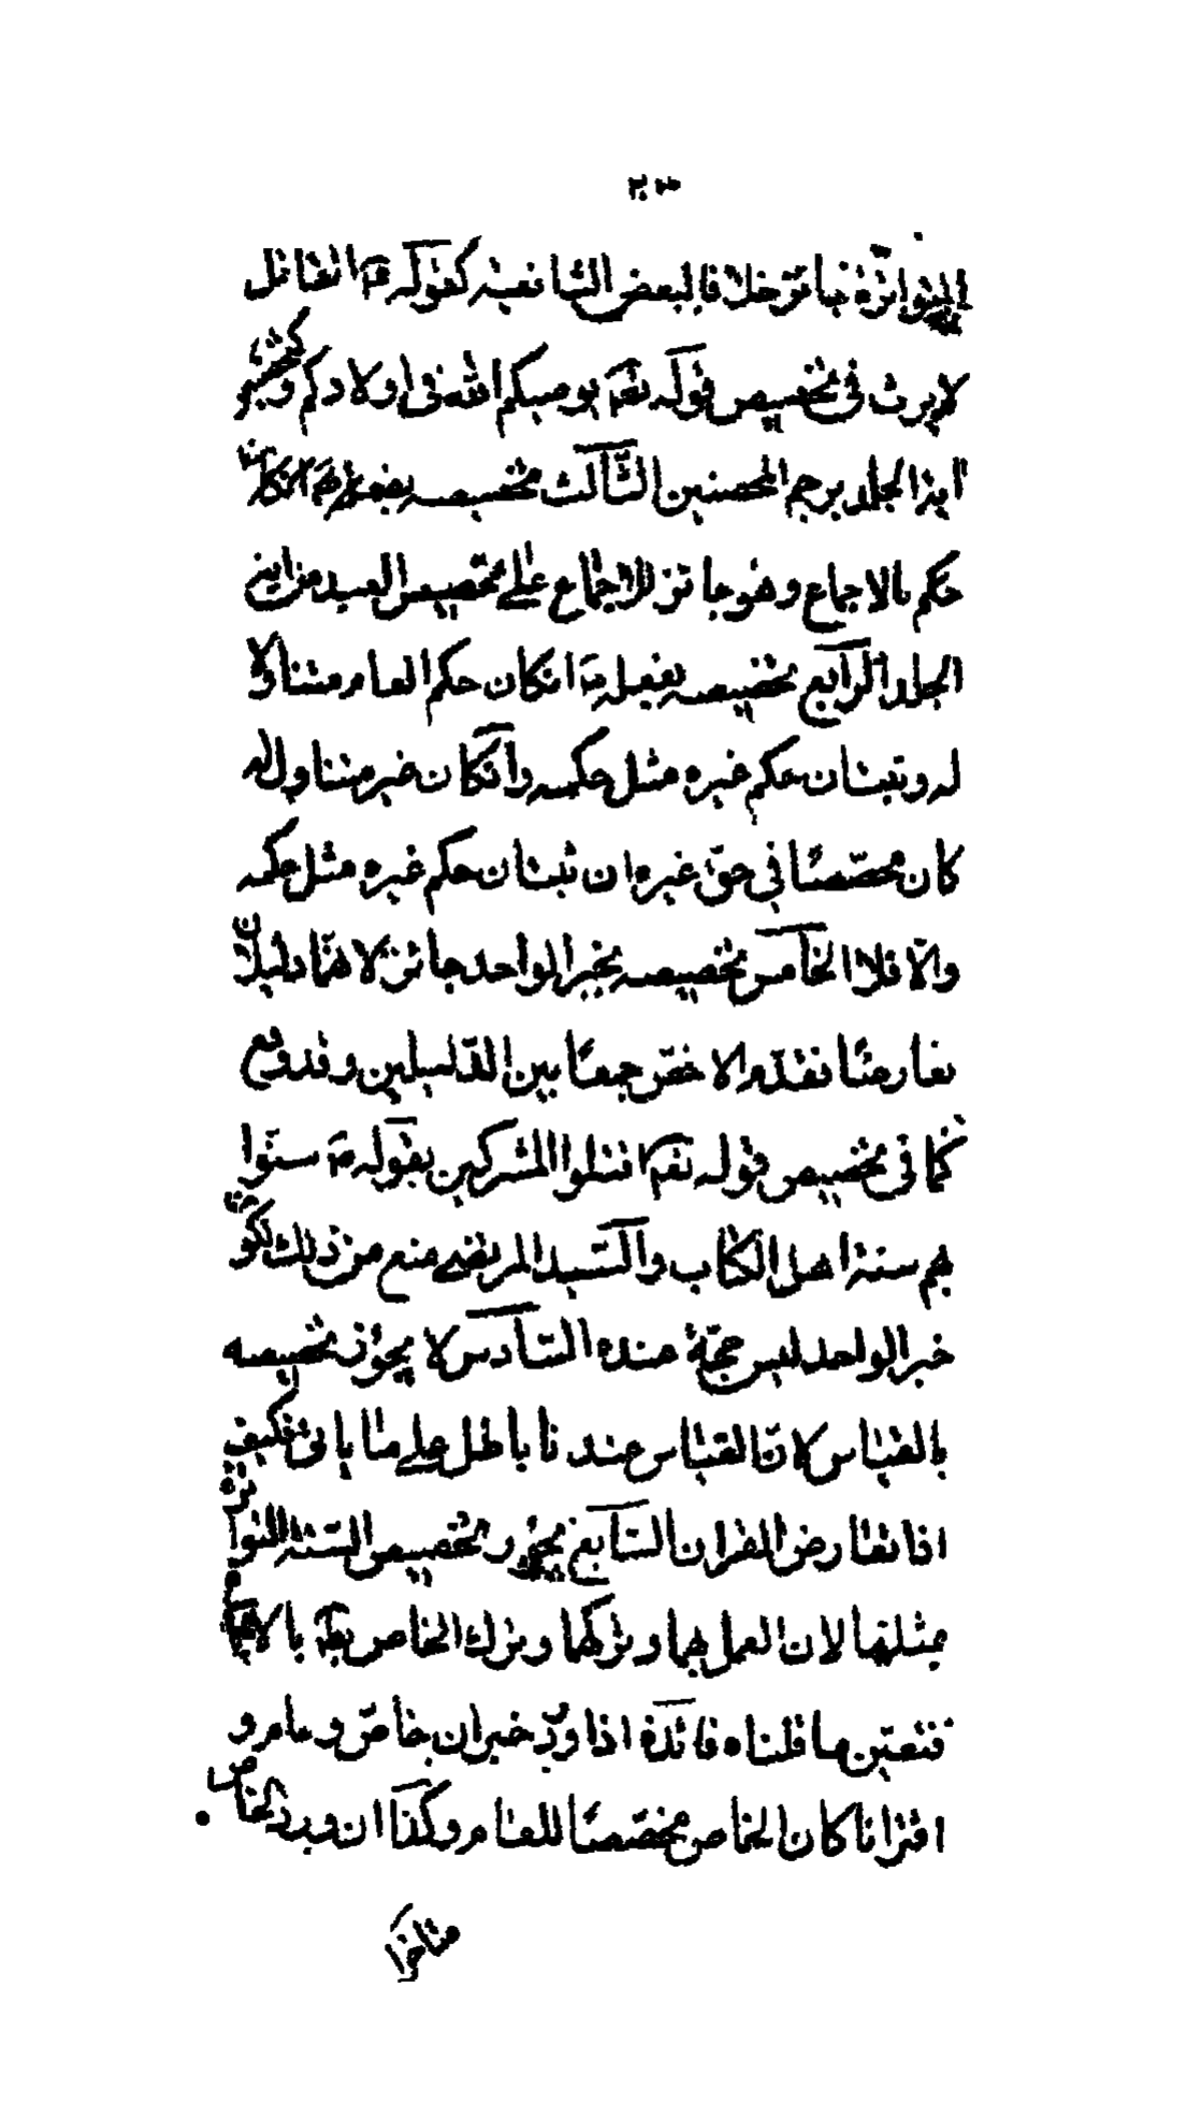 المتواترة جائز خلافا لبعض الشافعية كقوله ع القاتل
لا يرث في تخصيص قوله تعم يوصيكم الله في اولادكم وكتخصيص
اية الجلد برجم المحصنين الثالث تخصيصه
حكم بالاجماع وهو جائز للاجماع على تخصيص العبد من اية
الجلد الرابع تخصيصه بفعله ع ان كان حكم العام متناولا
له وثبت ان حكم غيره مثل حكمه وان كان غير متناول له
كان مخصصا في حق غيره ان ثبت ان حكم غيره مثل حكمه
والا فلا الخامس تخصيصه بخبر الواحد جائز لانهما دليلان
تعارضا تقدم الاخص جمعا بين الدليلين وقد وقع
كما في تخصيص قوله تعم اقتلوا المشركين بقوله ع سنوا
بهم سنة اهل الكتاب والسيد المرتضى منع من ذلك لكون
خبر الواحد ليس حجة عنده السادس لا يجوز تخصيصه
بالقياس لان القياس عندنا باطل على ما ياتى فكيف
اذا تعارض القران السابع يجوز تخصيص السنة المتواترة
بمثلها لان العمل بهما وتركهما وترك الخاص بط بالاجماع
فتعين ما قلناه فائدة اذا ورد خبران خاص وعام و
اقترنا كان الخاص مخصصا للعام وكذا ان ورد الخاص
متاخرا